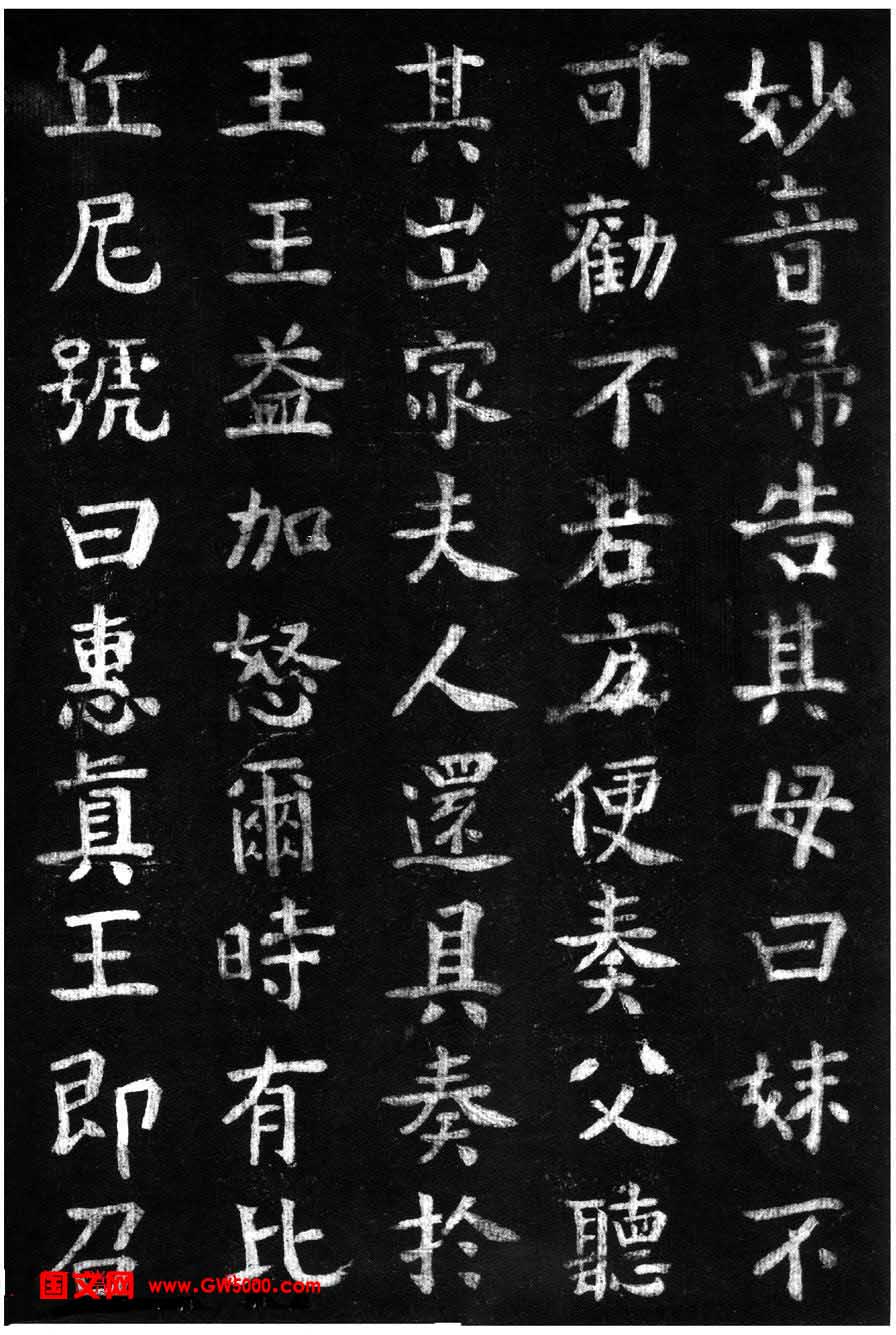 妙音歸告其母曰妹不
可勸不若方便奏父聽
其出家夫人還具奏於
王王益加怒爾時有比
丘尼號曰惠真王即召
国文网 www.GW5000.com